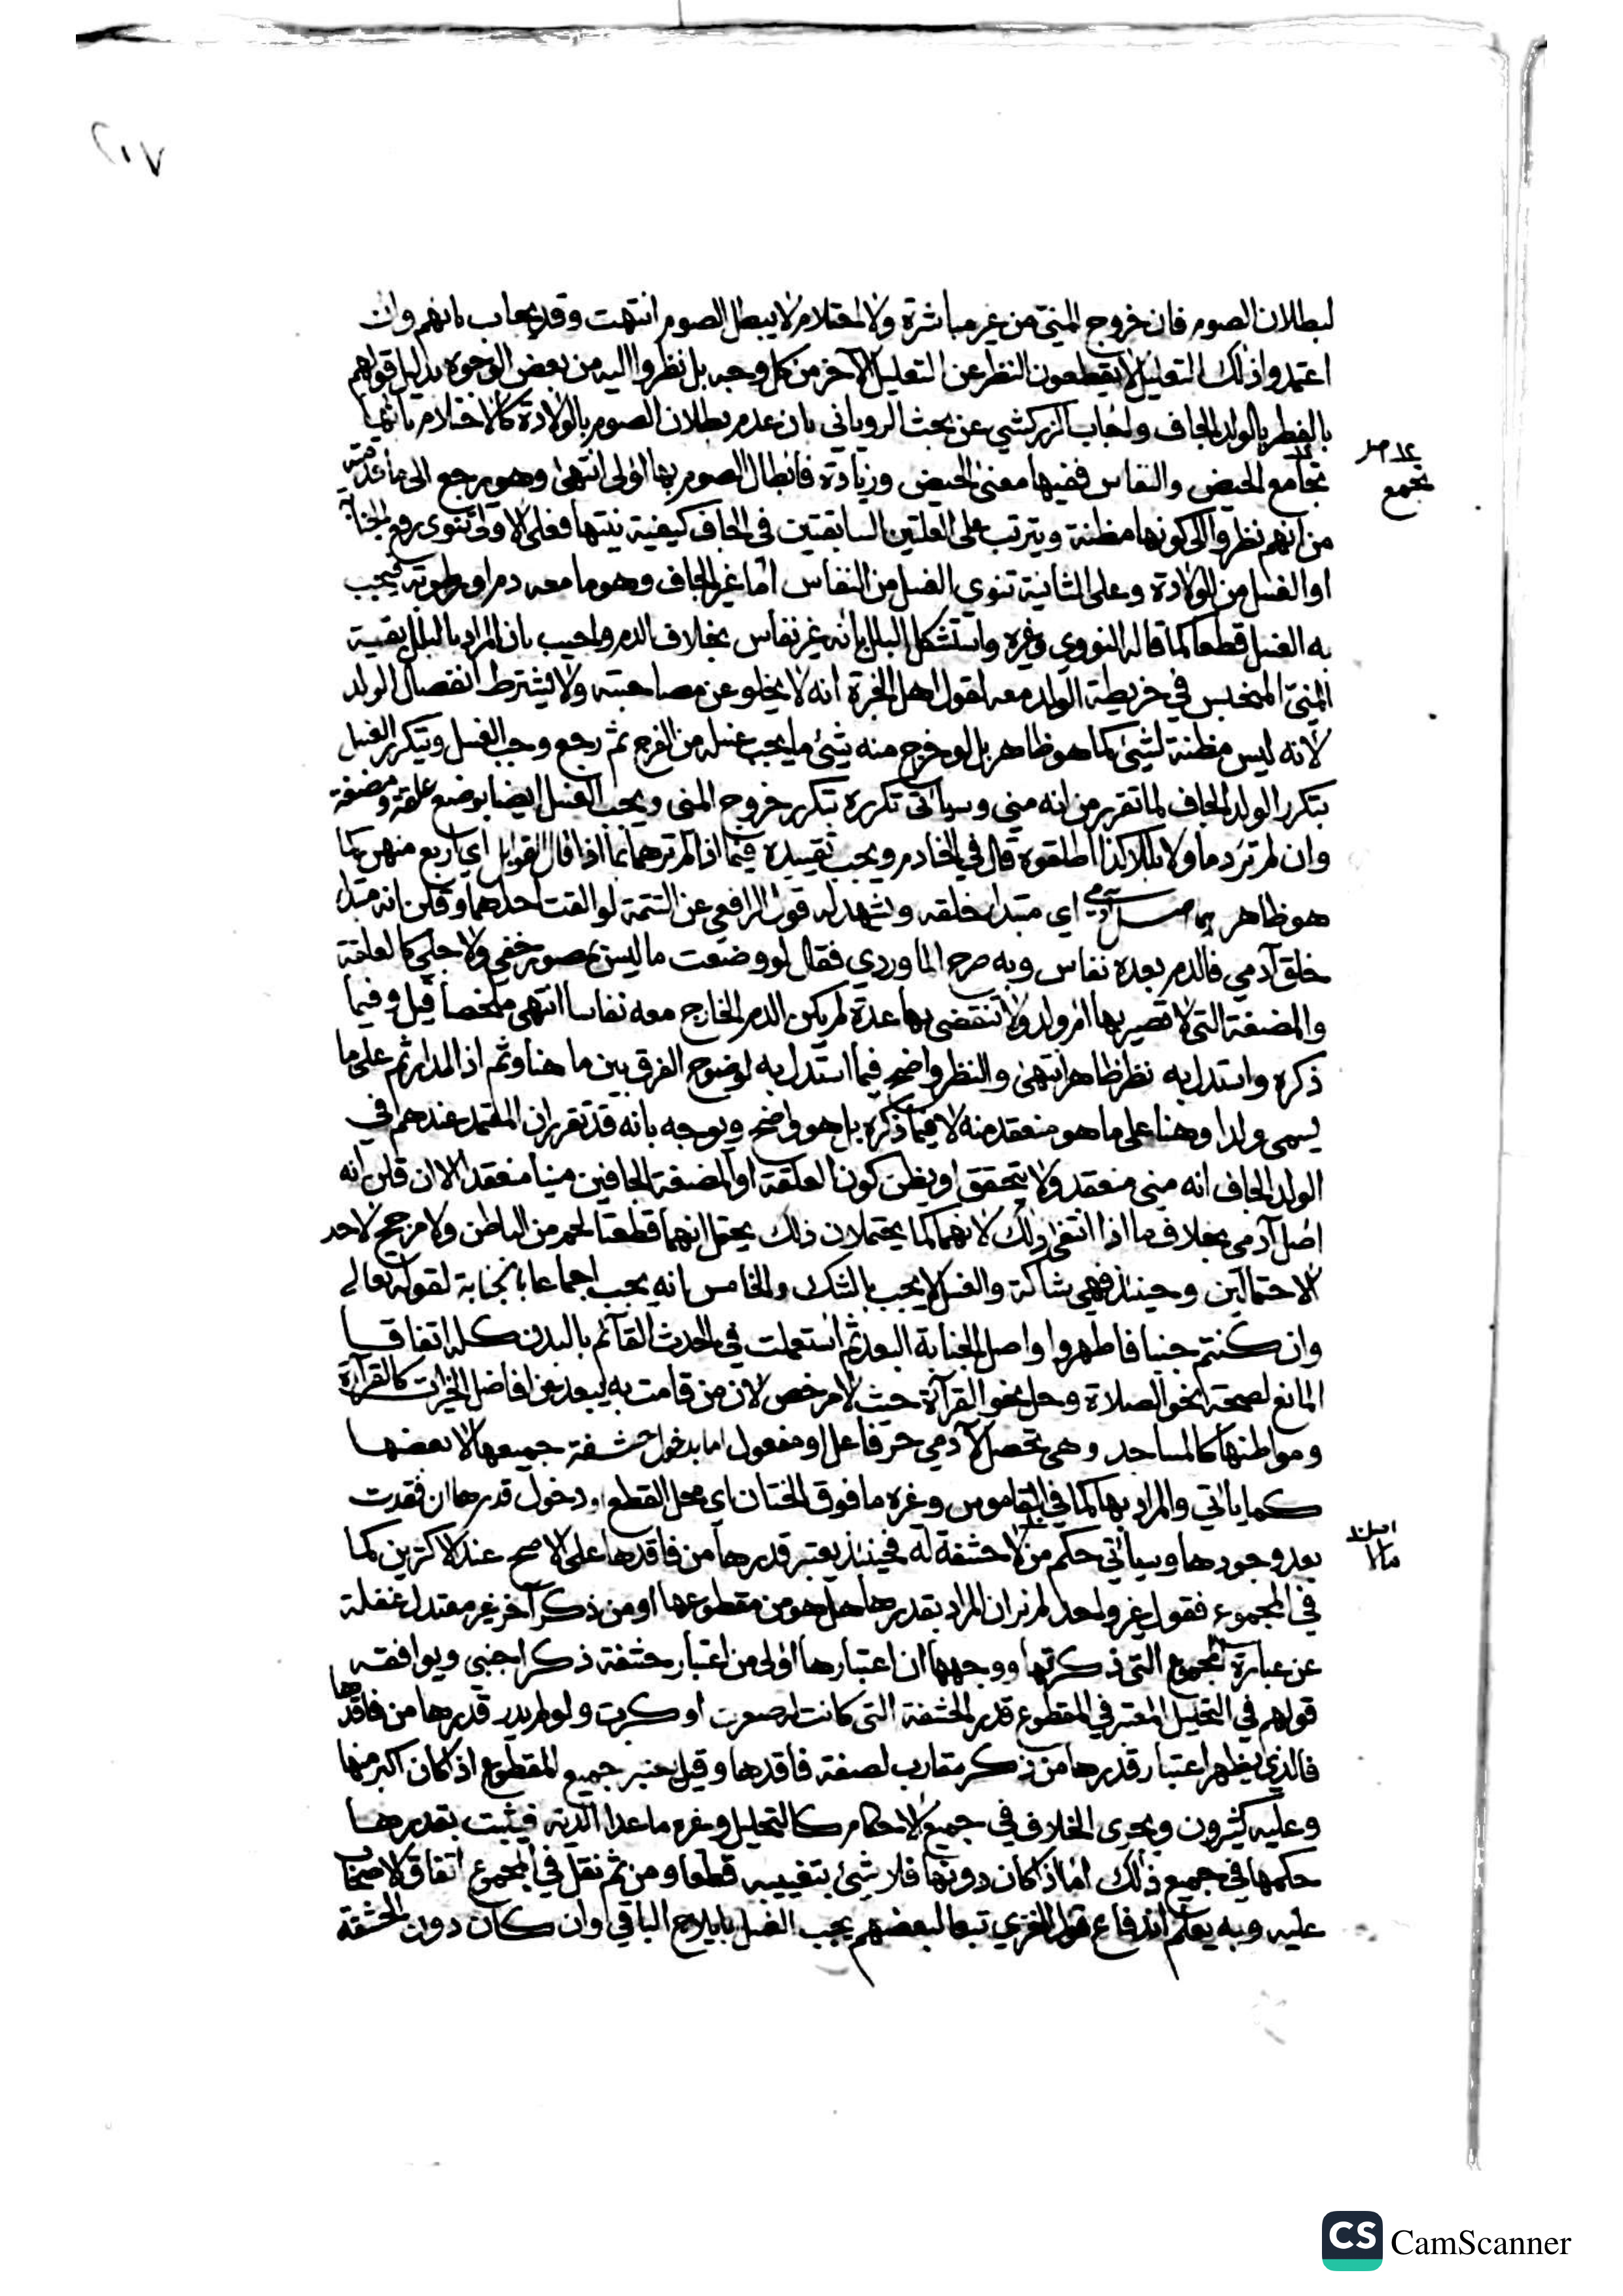 ٢١٧
لبطلان الصوم فان خروج المني من غير مباشرة ولا احتلام لا يبطل الصوم انتهت وقد يجاب بانهم وان
اعتمدوا ذلك التعليل لا يقطعون النظر عن التعليل الآخر من كل وجه بل نظروا اليه من بعض الوجوه بدليل قولهم
بالفطر بالولد الجاف واجاب الزركشي عن بحث الروياني بان عدم بطلان الصوم بالولادة كالاحتلام بانها
تجامع الحيض والنفاس ففيها معنى الحيض وزيادة فابطال الصوم بها اولى انتهى وهو يرجع الى ما قدمته
تجمع
من انهم نظروا الى كونها مظنة ويترتب على العلتين السابقتين في الجاف كيفية نيتها فعلى الاولى تنوى رفع الجنابة
او الغسل من الولادة وعلى الثانية تنوى الغسل من النفاس اما غير الجاف وهو ما معه دم او رطوبة فيجب
به الغسل قطعا كما قاله النووي وغيره واستشكل البلل بانه غير نفاس بخلاف الدم واجيب بان المراد بالبلل بقية
المني المنحبس في خريطة الولد معه لقول اهل الخبرة انه لا يخلو عن مصاحبته ولا يشترط انفصال الولد
لانه ليس مظنة لشيء كما هو ظاهر بل لو خرج منه شيء ما يجب غسله من الفرج ثم رجع وجب الغسل ويتكرر الغسل
بتكرر الولد الجاف لما تقرر من انه مني وسياتي تكرره بتكرر خروج المني ويجب الغسل ايضا بوضع علقة ومضغة
وان لم تر دما ولا بللا كذا اطلقوه قال في الخادم ويجب تقييده فيما اذا لم ترهما بما اذا قال القوابل اي اربع منهن كما
هو ظاهر انهما اصل آدمي اي مبتدا خلقه ويشهد له قول الرافعي عن التتمة لو القت احدهما وقلن انه مبتدا
خلق آدمي فالدم بعده نفاس وبه صرح الماوردي فقال لو وضعت ما ليس بمصور خفي ولا جلي كالعلقة
والمضغة التي لا تصير بها ام ولد ولا تنقضي بها عدة لم يكن الدم الخارج معه نفاسا انتهى ملخصا قيل وفيما
ذكره واستدل به نظر ظاهر انتهى والنظر واضح فيما استدل به لوضوح الفرق بين ما هنا وثم اذ المدار ثم على ما
يسمى ولدا وهنا على ما هو منعقد منه لا فيما ذكره بل هو واضح ويوجه بانه قد تقرر ان المعتمد عندهم في
الولد الجاف انه مني منعقد ولا يتحقق او يظن كون العلقة او المضغة الجافين منيا منعقدا الا ان قلن انه
اصل آدمي بخلاف ما اذا انتفى ذلك لانهما كما يحتملان ذلك يحتمل انهما قطعتا لحم من الباطن ولا مرجح لاحد
الاحتمالين وحينئذ فهي شاكة والغسل لا يجب بالشك والخامس انه يجب اجماعا بالجنابة لقوله تعالى
وان كنتم جنبا فاطهروا واصل الجنابة البعد ثم استعملت في الحدث القائم بالبدن كله اتفاقا
المانع لصحة نحو الصلاة وحل نحو القرآة حيث لا مرخص لان من قامت به يبعد عن افاضل الخيرات كالقرآءة
ومواطنها كالمساجد وهي تحصل لآدمي حي فاعل او مفعول اما بدخول حشفة جميعها لا بعضها
كما ياتي والمراد بها كما في القاموس وغيره ما فوق الختان اي محل القطع او دخول قدرها ان فقدت
بعد وجودها وسياتي حكم من لا حشفة له فحينئذ يعتبر قدرها من فاقدها على الاصح عند الاكثرين كما
في المجموع فقول غير واحد لم نر ان المراد بقدرها هل هو من مقطوعها او من ذكر آخر غير معتدل غفلة
عن عبارة المجموع التي ذكرتها ووجهها ان اعتبارها اولى من اعتبار حشفة ذكر اجنبي ويوافقه
قولهم في التحليل المعتبر في المقطوع قدر الحشفة التي كانت له صغرت او كبرت ولو لم يدر قدرها من فاقدها
فالذي يظهر اعتبار قدرها من ذكر مقارب لصفة فاقدها وقيل يعتبر جميع المقطوع اذا كان اكبر منها
وعليه كثيرون ويجرى الخلاف في جميع الاحكام كالتحليل وغيره ما عدا الدية فيثبت بقدرها
حكمها في جميع ذلك اما اذا كان دونها فلا شيء بتغييبه قطعا ومن ثم نقل في المجموع اتفاق الاصحاب
عليه وبه يعلم اندفاع قول الغزي تبعا لبعضهم يجب الغسل بايلاج الباقي وان كان دون الحشفة
CS CamScanner